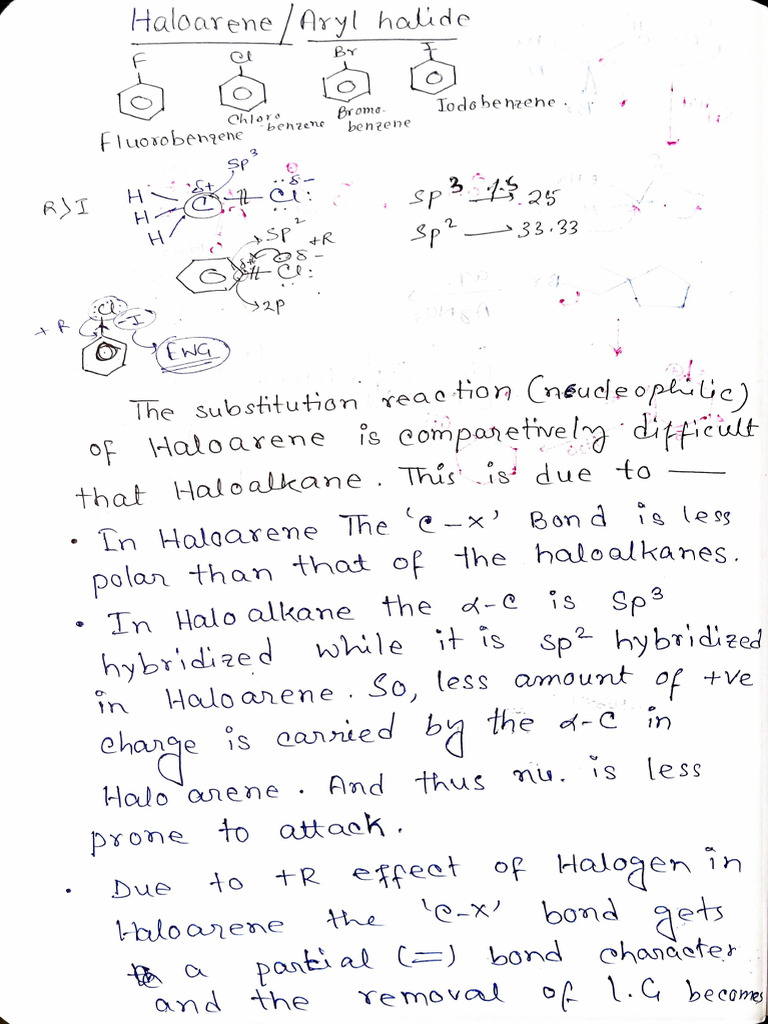 Haloarene/Aryl halide
F
Cl
Br
I
Fluorobenzene
Chlorobenzene
Bromobenzene
Iodobenzene.
sp³
R>I
H
H
H
C
δ+
δ-
Cl
sp³ %S 25
sp² 33.33
sp²
+R
δ+
δ-
Cl
2p
+R
Cl
-I
EWG
The substitution reaction (neucleophilic)
of Haloarene is comparetively difficult
that Haloalkane. This is due to —
• In Haloarene The 'C-X' Bond is less
polar than that of the haloalkanes.
• In Haloalkane the α-C is sp³
hybridized while it is sp² hybridized
in Haloarene. So, less amount of +ve
charge is carried by the α-C in
Halo arene. And thus nu. is less
prone to attack.
• Due to +R effect of Halogen in
Haloarene the 'C-X' bond gets
a partial (=) bond character
and the removal of L.G becomes